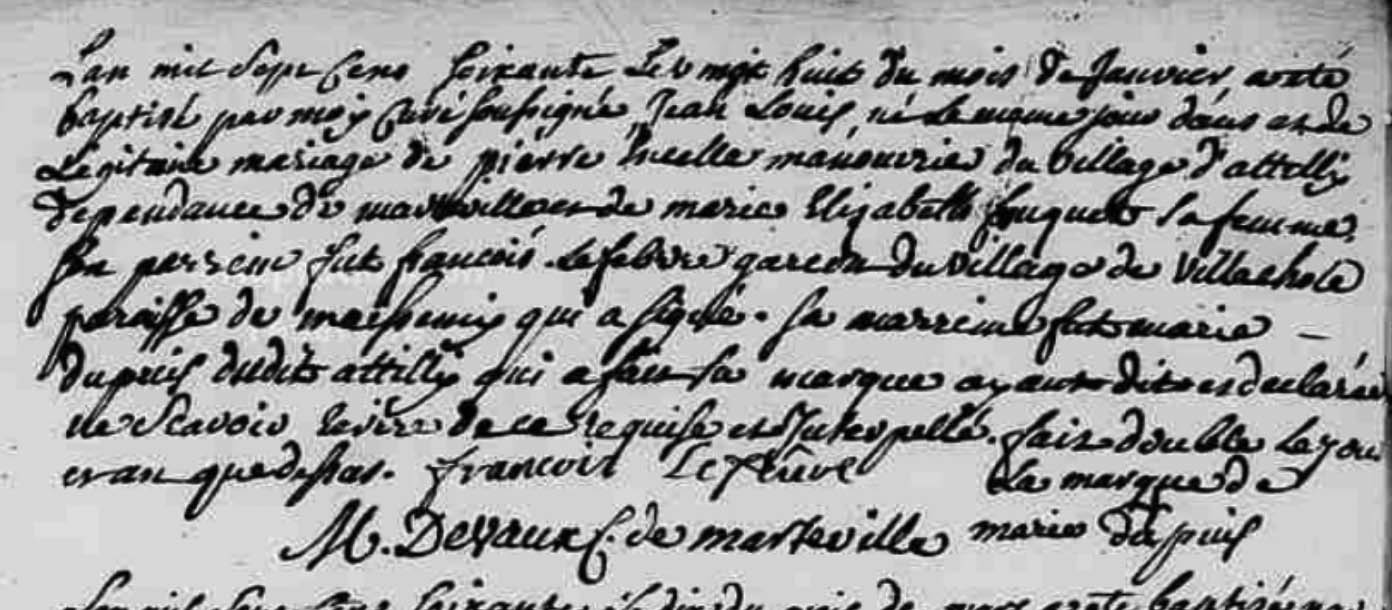 Lan mil Sept Cens soixante Le vingt huit du mois de Janvier, a eté
baptisé par moy Curé soussigné, Jean Louis, né Le meme jour dans et de
Légitime mariage de pierre Lucelle manouvrier du village d'attilly
dependance de marteville et de marie Elizabeth fouquet sa femme.
son perrein fut francois Lefebvre garcon du village de Villechole
paroisse de maissemy qui a signé. sa marreine fut marie
dupuis dudit attilly qui a fait sa marque ayant dit et declarée
ne Scavoir Ecrire de ce requise et Interpellé. fait double Le jour
et an que dessus. francois Lefevre La marque de
M. Devaux C. de marteville marie dupuis
Lan mil Sept Cens soixante Le du mois de mars a eté baptisé